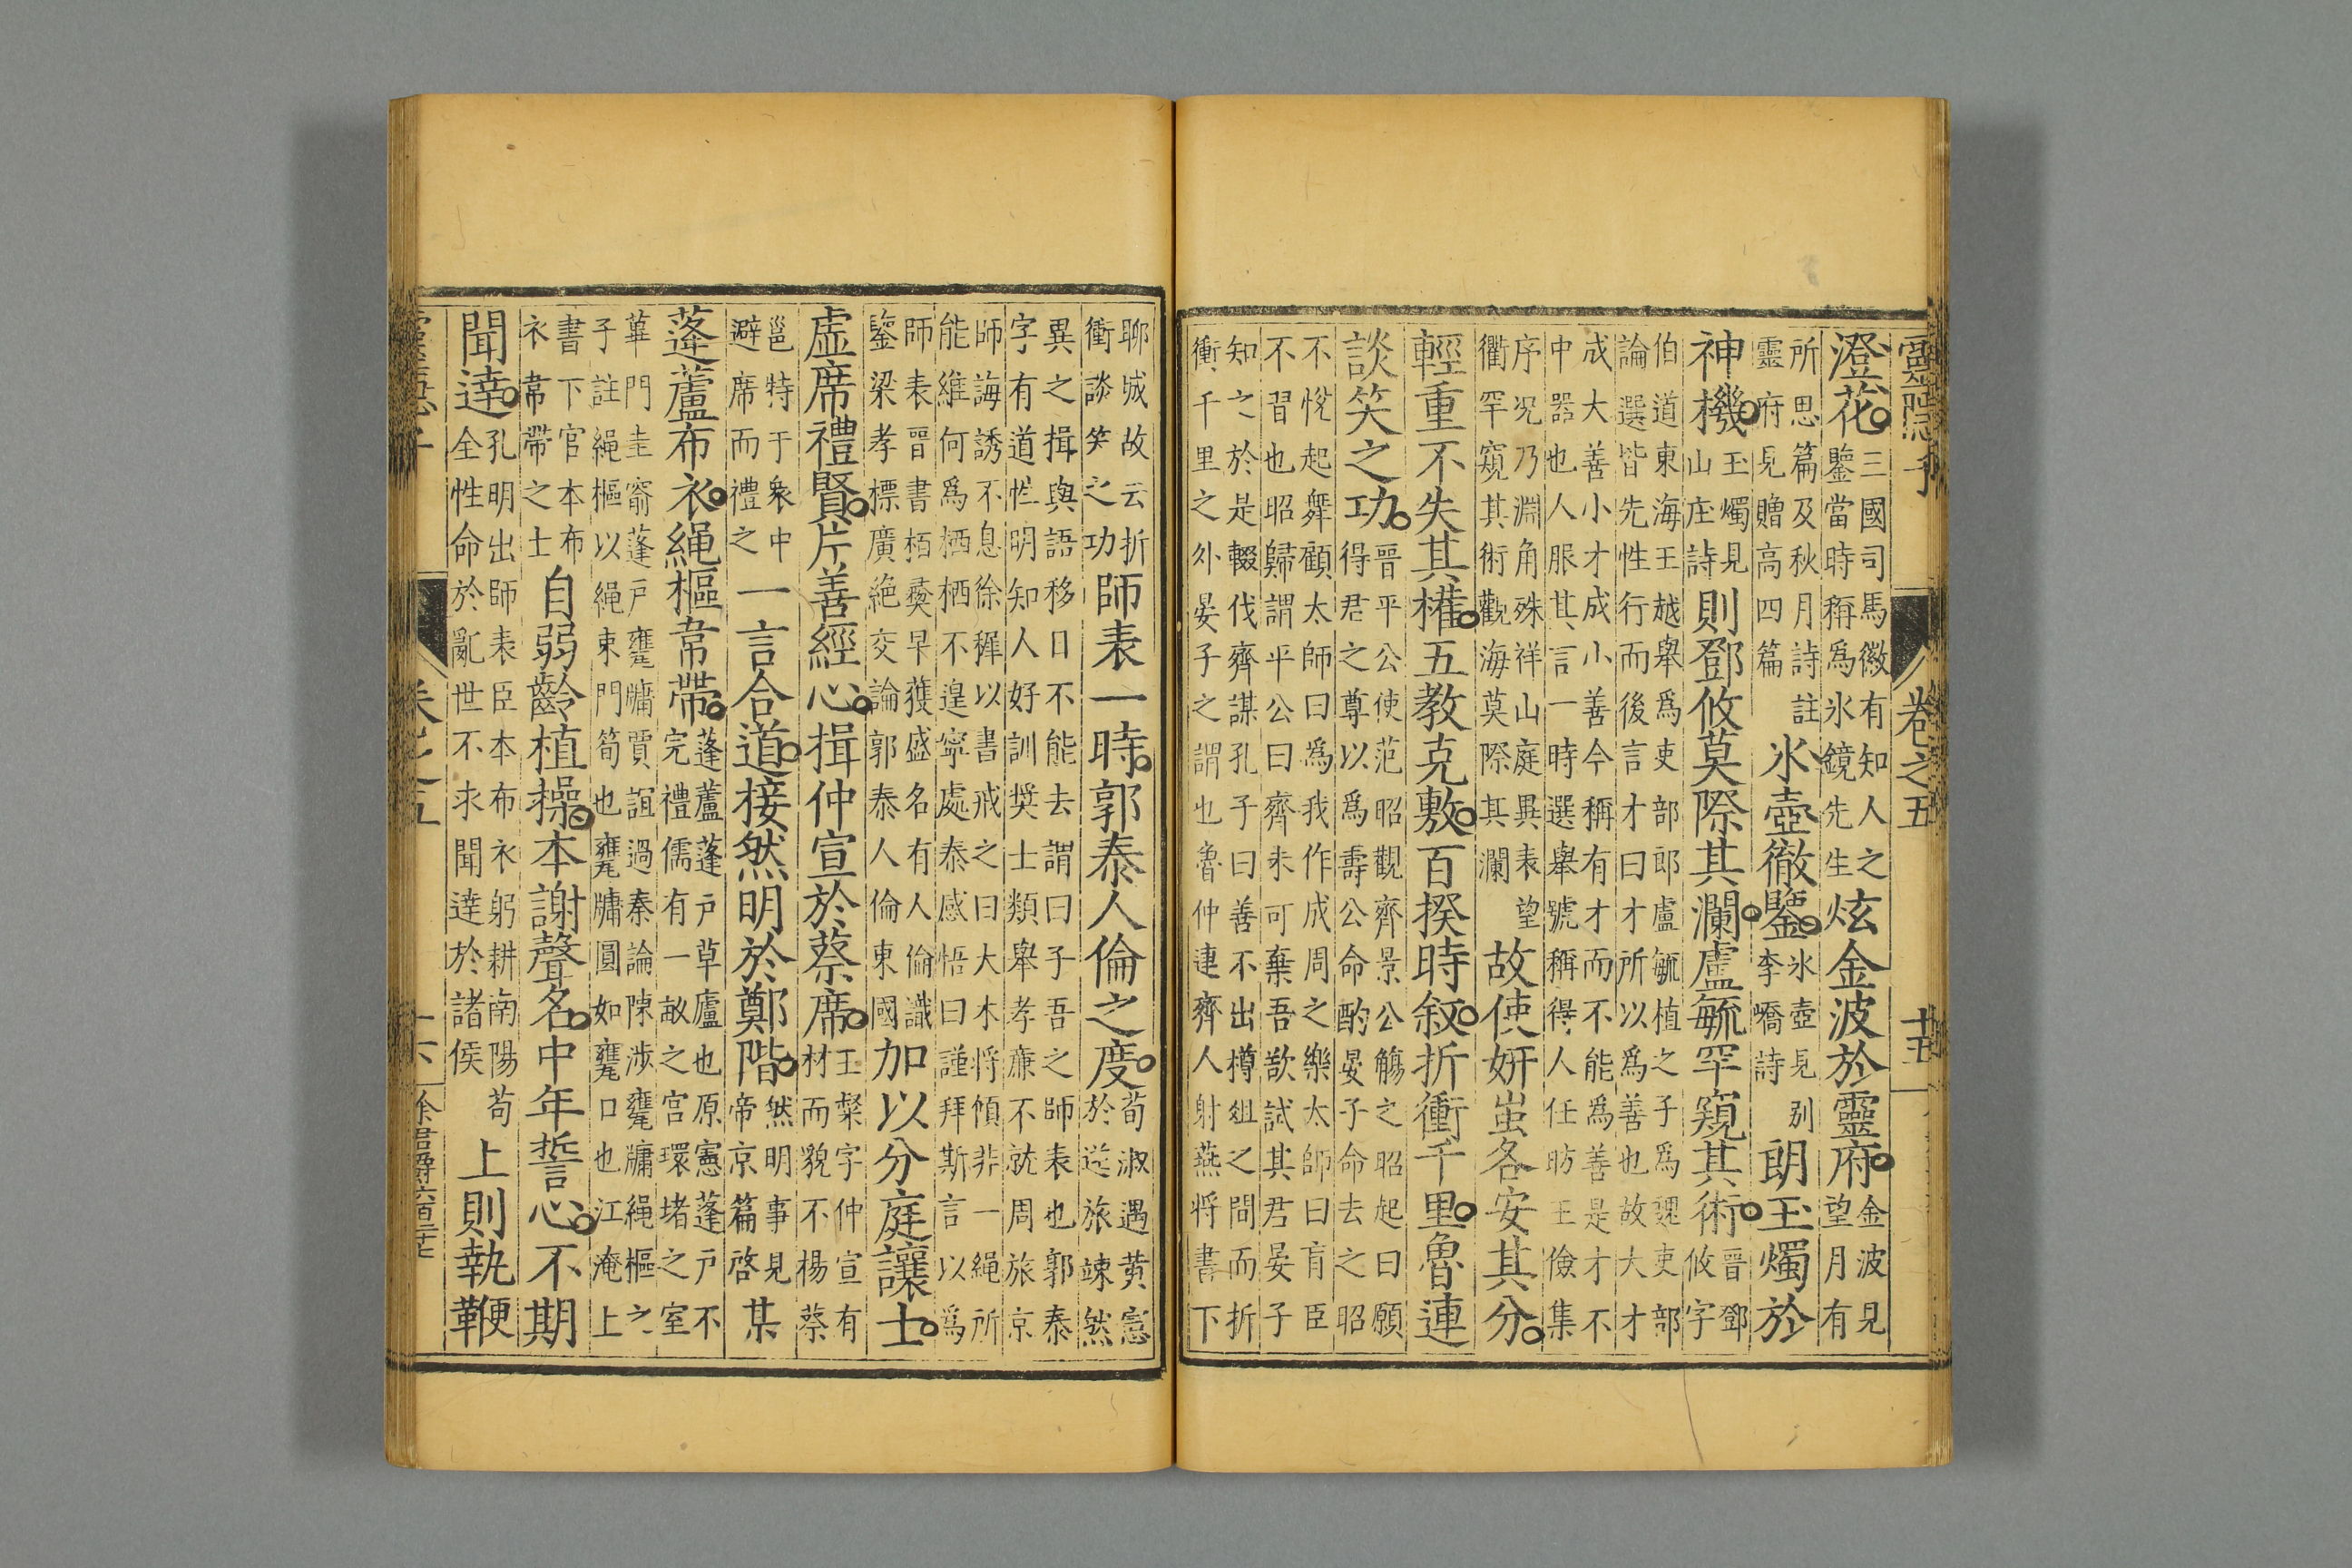 靈隱子
卷之五
十五
澄花鑒當時稱爲氷鏡先生三國司馬徽有知人之炫金波於靈府金波見望月有
所思篇及秋月詩註靈府見贈高四篇氷壺徹鑒氷壺見別李嶠詩朗玉燭於
神機玉燭見山庄詩則鄧攸莫際其瀾盧毓罕窺其術晋鄧攸字
伯道東海王越舉爲吏部郎盧毓植之子爲魏吏部
論選皆先性行而後言才曰才所以爲善也故大才
成大善小才成小善今稱有才而不能爲善是才不
中器也人服其言一時選舉號稱得人任昉王儉集
序况乃淵角殊祥山庭異表望
衢罕窺其術觀海莫際其瀾故使妍蚩各安其分
輕重不失其權五教克敷百揆時叙折衝千里魯連
談笑之功晋平公使范昭觀齊景公觴之昭起曰願
得君之尊以爲壽公命酌晏子命去之昭
不悅起舞顧太師曰爲我作成周之樂太師曰盲臣
不習也昭歸謂平公曰齊未可棄吾欲試其君晏子
知之於是輟伐齊謀孔子曰善不出樽俎之間而折
衝千里之外晏子之謂也魯仲連齊人射燕将書下
聊城故云折
衝談笑之功師表一時郭泰人倫之度荀淑遇黄憲
於逆旅竦然
異之揖與語移日不能去謂曰子吾之師表也郭泰
字有道性明知人好訓奬士類舉孝廉不就周旅京
師誨誘不息徐穉以書戒之曰大木将傾非一繩所
能維何爲栖栖不遑寧處泰感悟曰謹拜斯言以爲
師表晋書栢彞早獲盛名有人倫識
鑒梁孝標廣絶交論郭泰人倫東國加以分庭讓士
虛席禮賢片善經心揖仲宣於蔡席王粲字仲宣有
材而貌不楊蔡
邕特于衆中
避席而禮之一言合道接然明於鄭階然明事見
帝京篇啓某
蓬蘆布衣繩樞韋帶蓬蘆蓬戸草廬也原憲蓬戸不
完禮儒有一畝之宫環堵之室
蓽門圭窬蓬戸甕牖賈誼過秦論陳涉甕牖繩樞之
子註繩樞以繩束門筍也甕牖圓如甕口也江淹上
書下官本布
衣韋帶之士自弱齡植操本謝聲名中年誓心不期
聞達孔明出師表臣本布衣躬耕南陽苟
全性命於亂世不求聞達於諸侯上則執鞭
卷之五
余君爵六百三十七